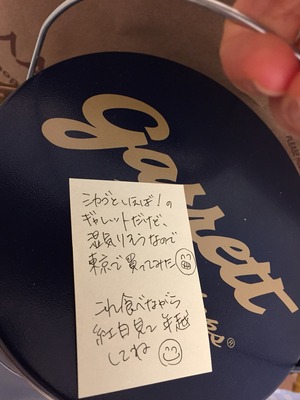 Garrett
®
シカゴといえば!の
ギャレットだけど、
湿気りそうなので
東京で買ってみた
これ食べながら
紅白見て年越
してね